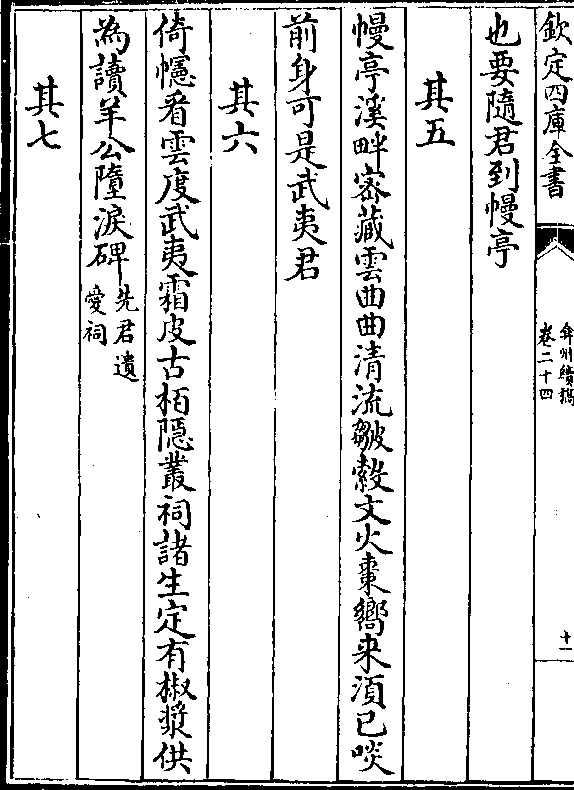 欽定四庫全書
弇州續稿
卷二十四
十一
也要隨君到幔亭
其五
幔亭溪畔密藏雲曲曲清流皺縠文火棗嚮来須已啖
前身可是武夷君
其六
倚幰看雲度武夷霜皮古栢隱叢祠諸生定有椒漿供
為讀羊公墮淚碑先君遺
愛祠
其七